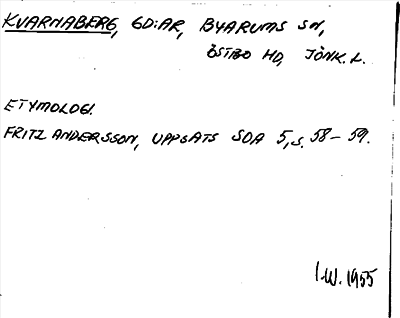 KVARNABERG, GD:AR, BYARUMS SN,
ÖSTBO HD, JÖNK. L.
ETYMOLOGI.
FRITZ ANDERSSON, UPPSATS SOA 5, S. 58-59.
I.W. 1955